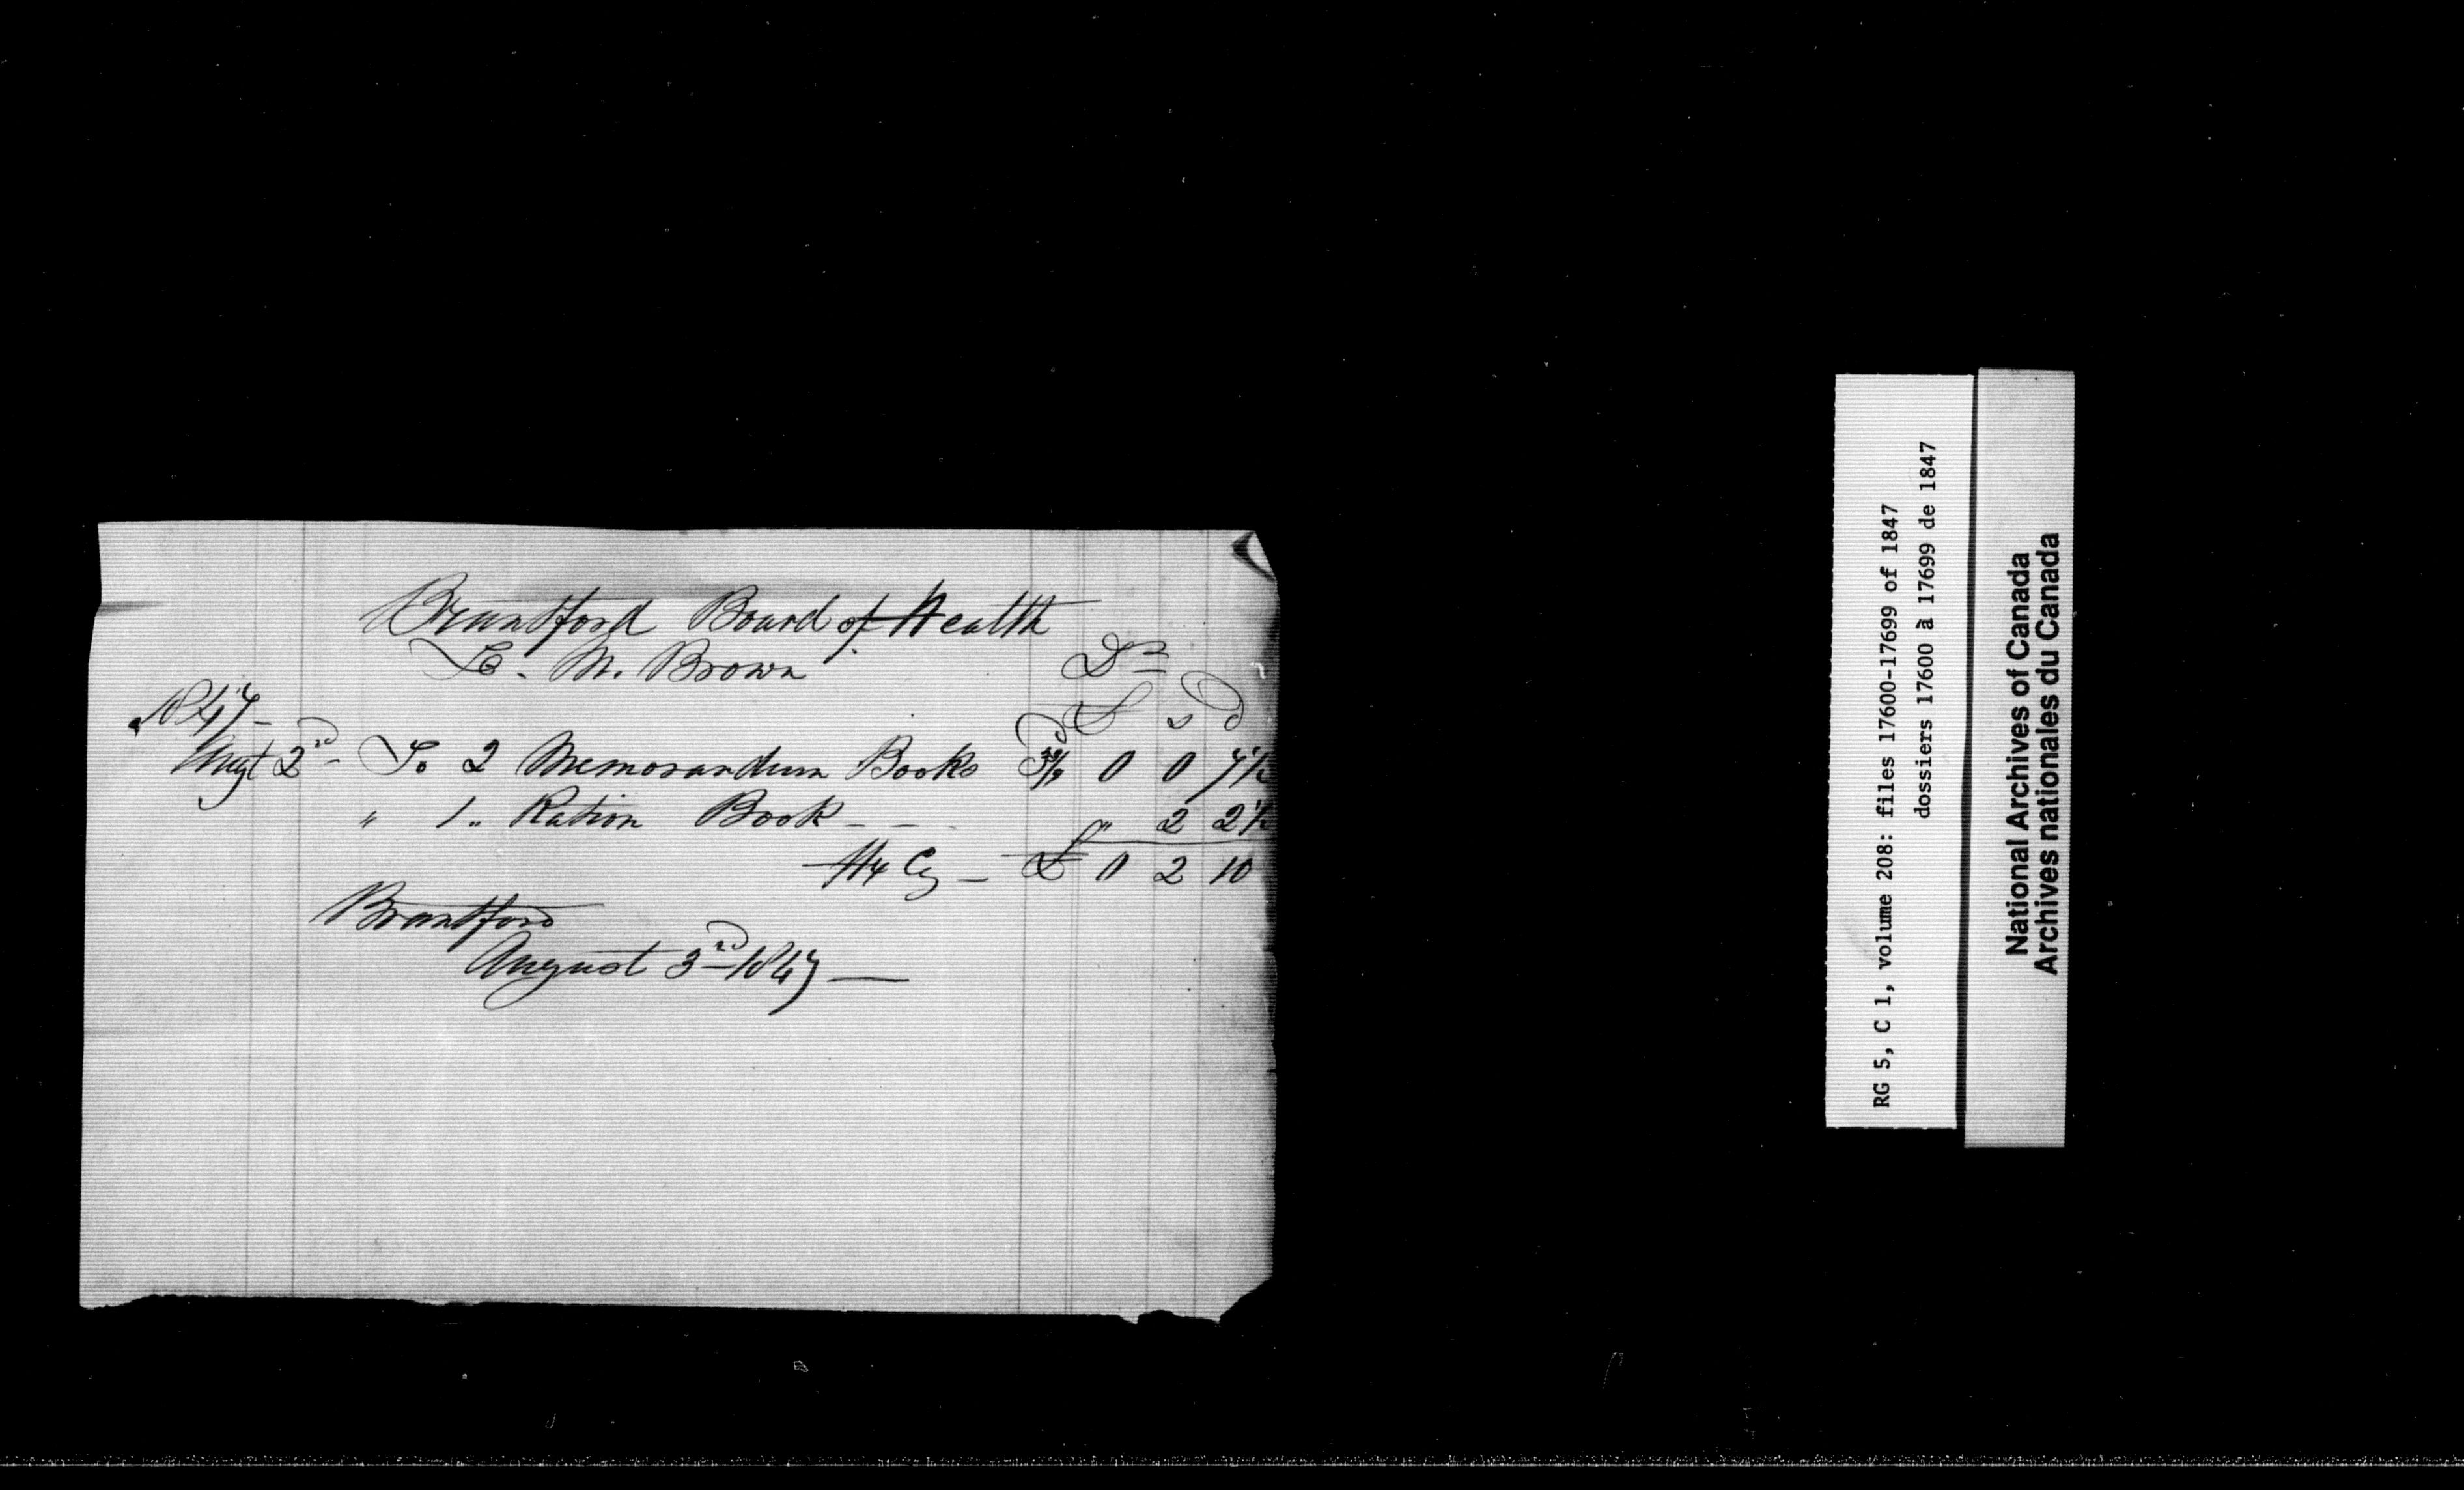 Brantford Board of Health
To M. Brown Dr
1847 - £ s d
Augt 2nd - To 2 Memorandum Books 3¾d 0 0 7½
" 1 " Ration Book - - - " 2 2½
Hx Cy - £ 0 2 10
Brantford
August 3rd 1847 —
RG 5, C 1, volume 208: files 17600-17699 of 1847
dossiers 17600 à 17699 de 1847
National Archives of Canada
Archives nationales du Canada